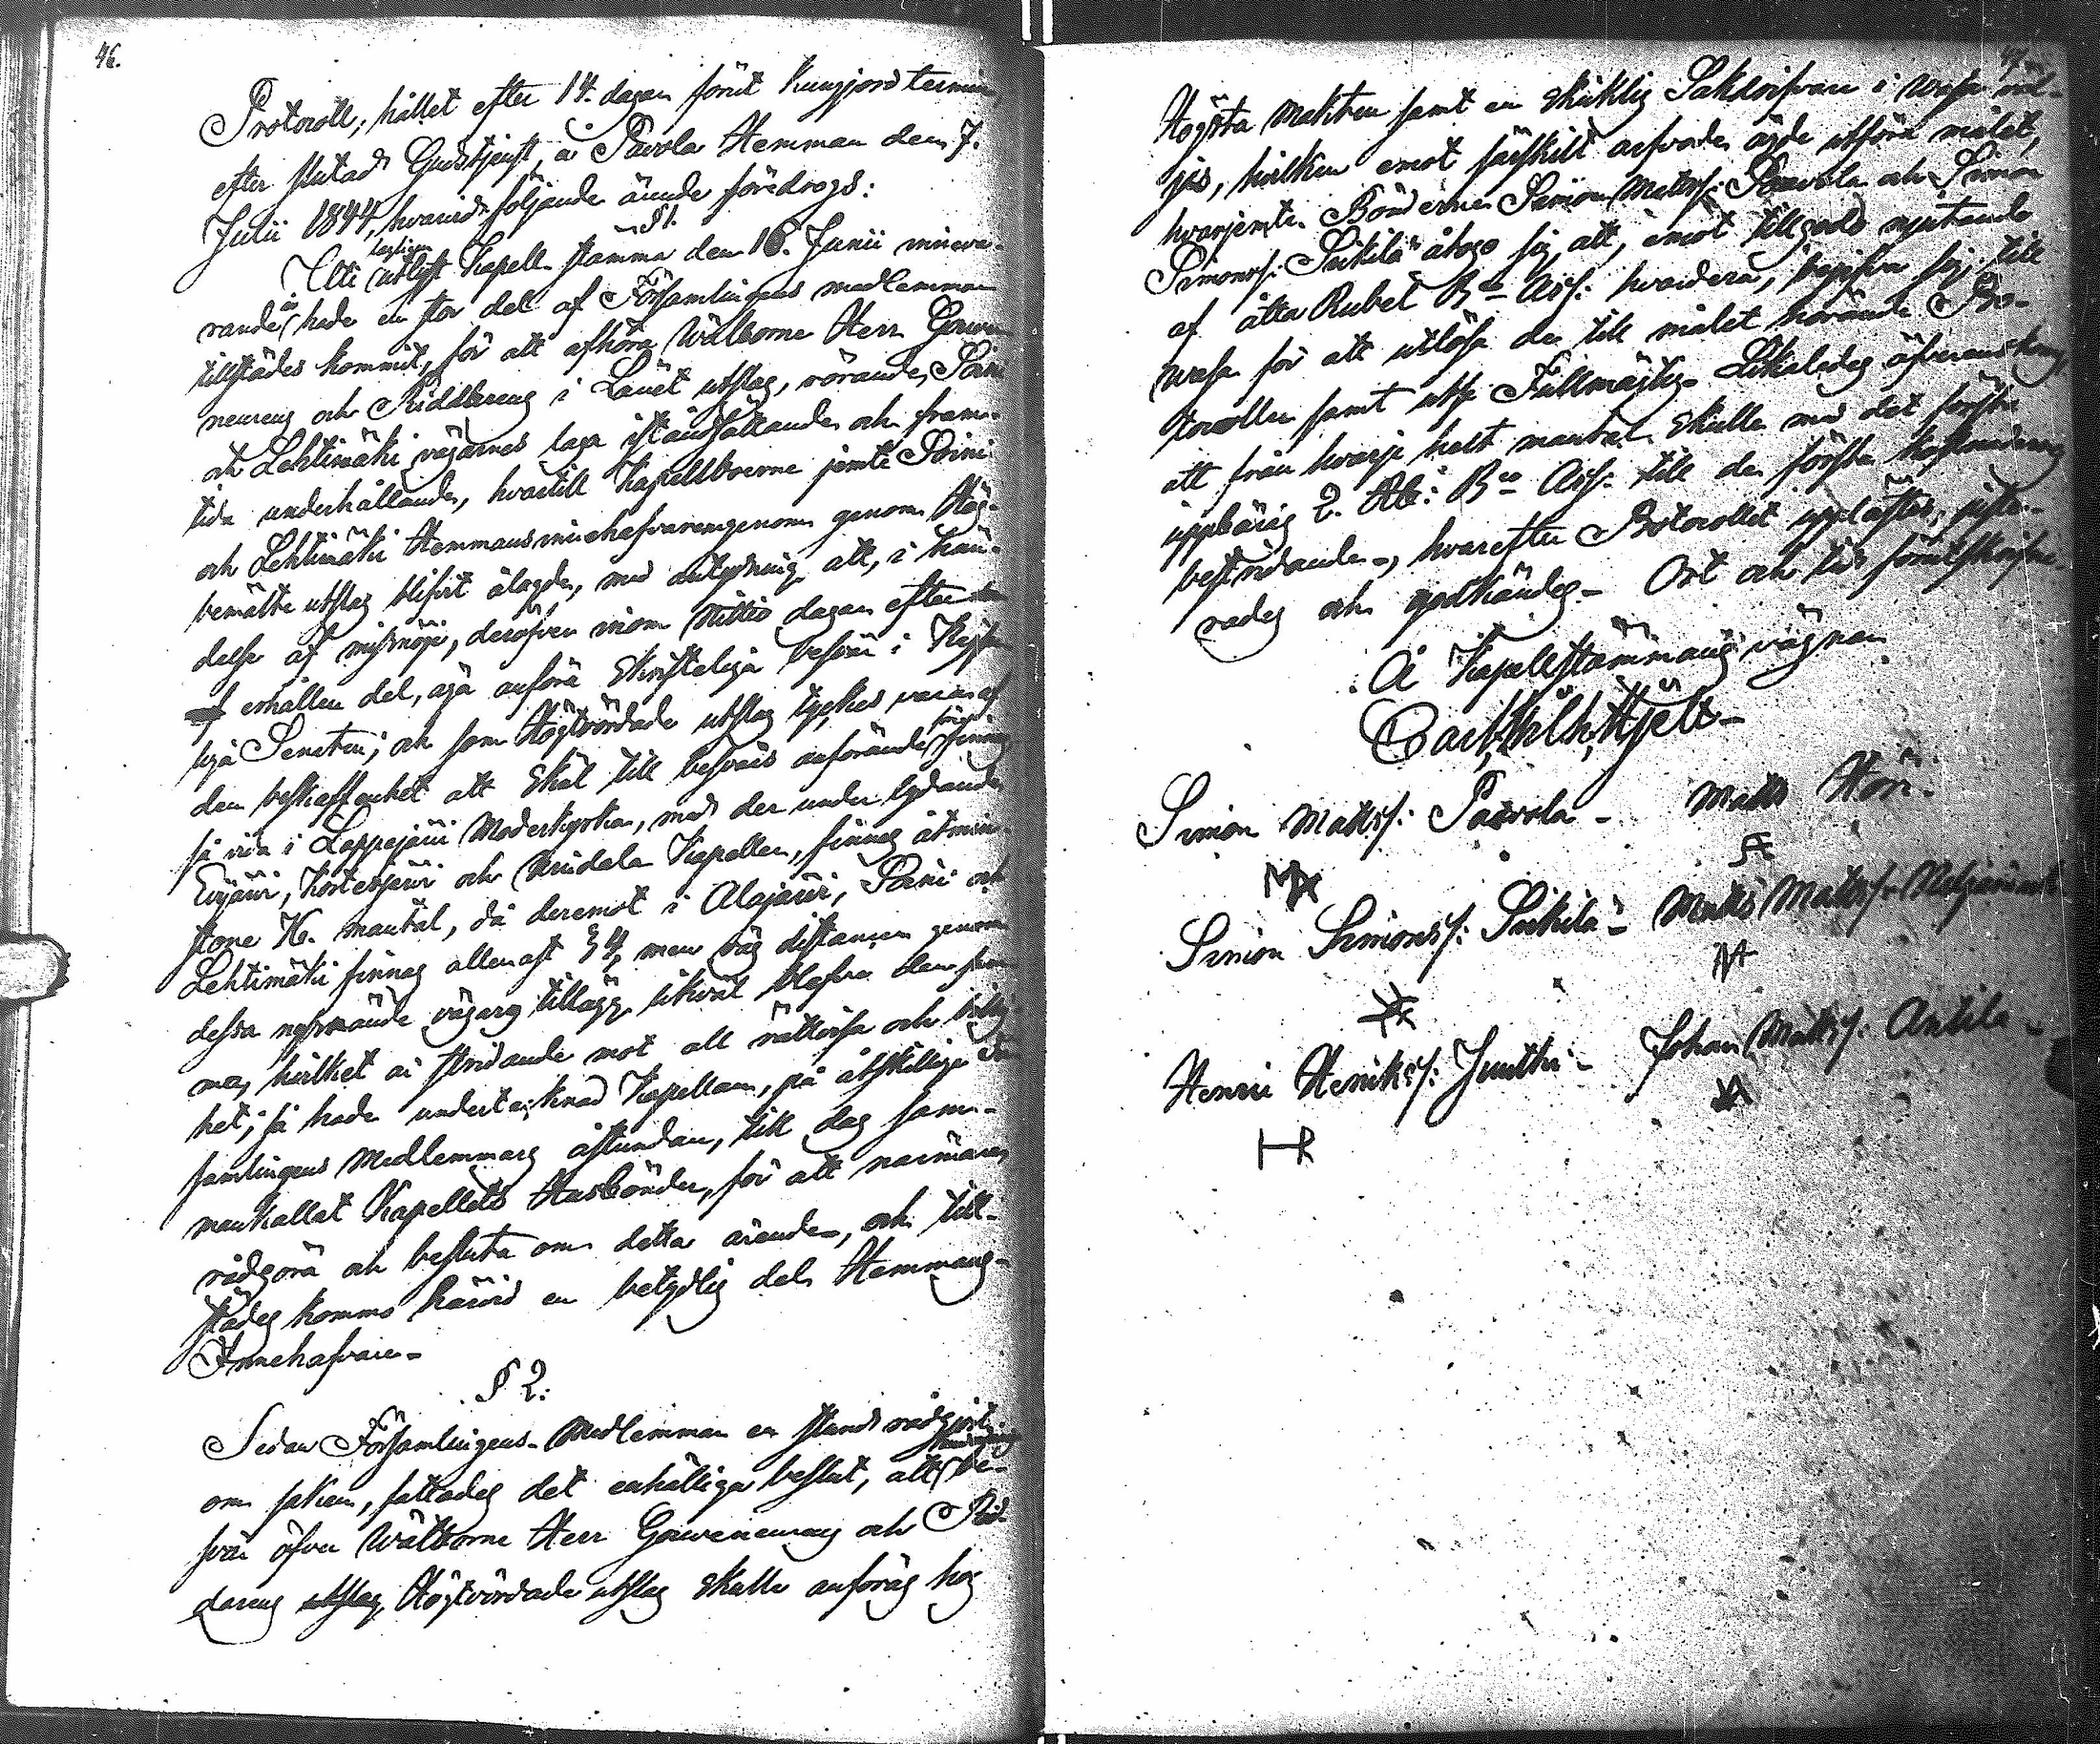 46.
Protocoll, hållet efter 14. dagar förut kungjord termin,
efter slutad Gudstjenst, å Pavola Hemman den 7.
Julii 1844, hvarvid följande ärende föredrogs:
§ 1.
Uti utlyst lagligen Kapell stämma den 16. Junii inneva-
rande år hade en stor del af Församlingens medlemmar
tillstädes kommit, för att afhöra Wälborne Herr Gouver
neurens och Riddarens i Länet utslag, rörande Soini
och Lehtimäki vägarnes laga iståndsättande och fram-
tida underhållande, hvartill Kapellboerne jemte Soini
och Lehtimäki Hemmansinnehafvaren genom Hög-
bemälte utslag blifvit ålagde, med antydning att, i hän-
delse af missnöje, deröfver inom Nittio dagar efter
erhållen del, äga anföra skriftelige besvär i Kejser
liga Senaten; och som Högtvördade utslag tyckes vara af
den beskaffenhet att skäl till besvärs anförande finnes
så vida i Lappajärvi Moderkyrka, med der under lydande
Evijärvi, Kortesjärvi och Windala Kapeller, finnes åtmin-
stone 76. mantal, då deremot i Alajärvi, Soini och
Lehtimäki finnes allenast 34, men väg distancen genom
dessa nyssnämnde vägars tillägg likväl blefve den sam
ma, hvilket är stridande mot all rättvisa och billig
het; så hade undertecknad Kapellan, på åtskillige För
samlingens Medlemmars åstundan, till dag sam-
mankallat Kapellets Husbönder, för att närmare
rådgöra och besluta om detta ärende, och till-
städes kommo härvid en betydlig del Hemmans-
Innehafvare-
§ 2.
Sedan Församlingens Medlemmar en stund rådgjort
om saken, fattades det enhälliga beslut, att be-
svär öfver Wälborne Herr Gouverneurens och Rid-
darens utslag, Högtvördade utslag skulle anföras hos
47.
Högsta Makten samt en skicklig Sakdrifvare i Wasa
jas, hvilken emot särskilt arfvode ägde utföra målet,
hvarjemte Bönderne Simon Matts: Paavola och Simon
Simons: Sickilä åtogo sig att, emot tillgodo njutande
af åtta Rubel Bco Ass: hvardera, begifva sig till
Wasa för att utlösa de till målet hörande Pro-
tocoller samt utse Fullmäktig. Likaledes öfverenskoms,
att från hvarje helt mantal skulle med det första
uppbäras 2. Rb: Bco Ass. till den första kostnadens
bestridande, hvarefter Protocollet upplästes, juste-
rades och godkändes. Ort och tid förutskrifne
Å Kapellstämmans vägnar
Carl Wilh. Hjelt
Simon Matts: Paavola - Matts Hori.
Simon Simons: Sickilä - Matts Matts:
Henric Henriks: Junthi - Johan Matts: Antila